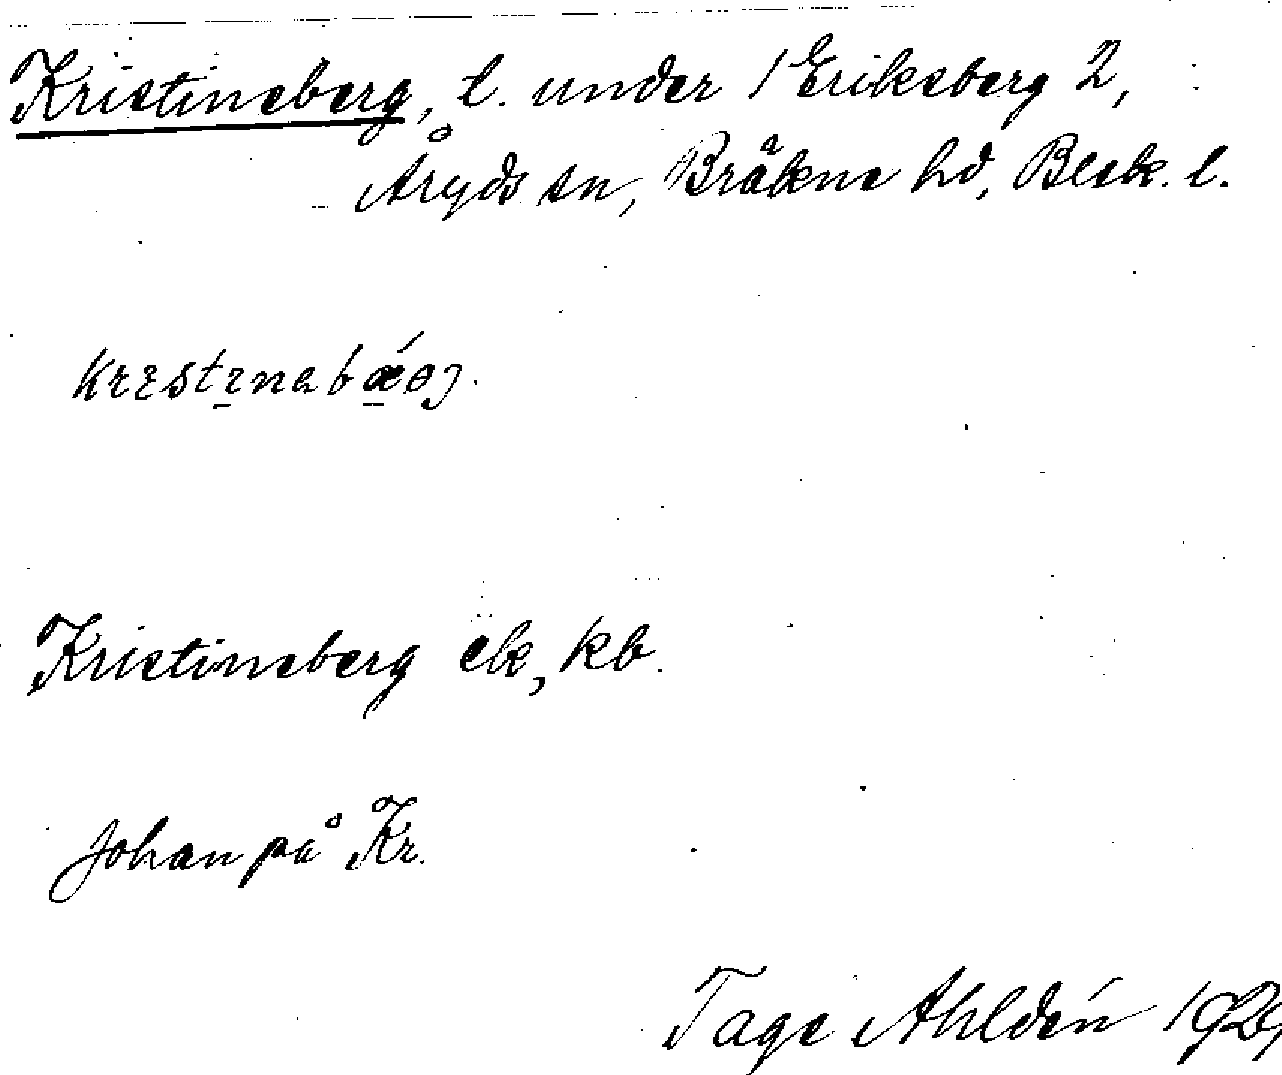 Kristineberg, l. under 1 Eriksberg 2,
Åryds sn, Bräkne hd, Blek. l.
Kristineberg ek, kb.
Johan på Kr.
Tage Ahldén